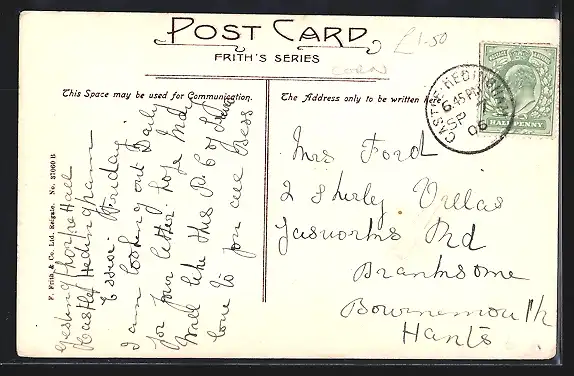 POST CARD
FRITH'S SERIES
£1.50
CORN
This Space may be used for Communication.
The Address only to be written here
CASTLE HEDINGHAM
6.45 PM
SP 7
06
HALFPENNY
Mrs Ford
2 Shirley Villas
Rd
Branksome
Bournemouth
Hants
Hall
Castle Hedingham
Essex. Friday.
I am looking out Daily
for your letter. hope Indy
will like this P.C of
love to you all Bess
F. Frith, & Co. Ltd. Reigate. No. 51060 B